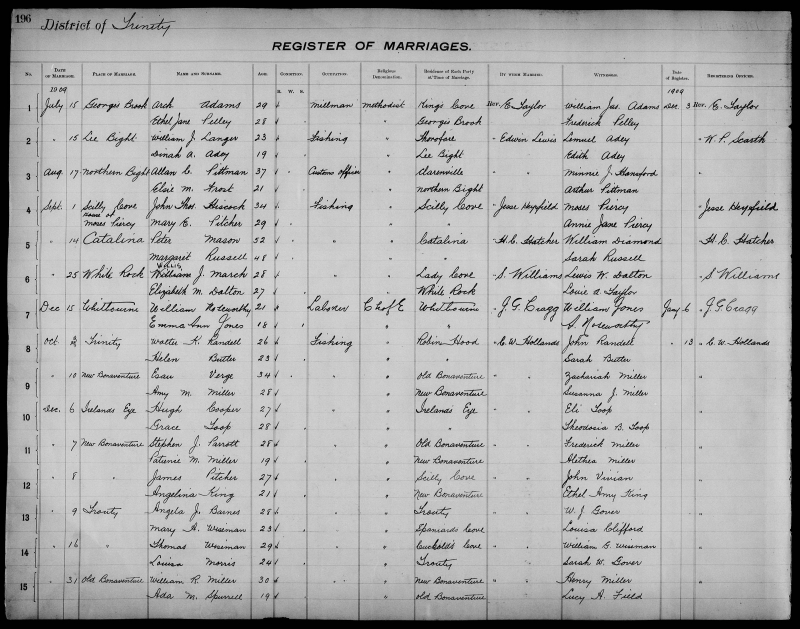 196
District of Trinity
REGISTER OF MARRIAGES.
No. DATE OF MARRIAGE. PLACE OF MARRIAGE. NAME AND SURNAME. AGE. CONDITION. OCCUPATION. Religious Denomination. Residence of Each Party at Time of Marriage. BY WHOM MARRIED. WITNESSES. Date of Register. REGISTERING OFFICER.
1909 B. W. S. 1909
1 July 15 Georges Brook Arch Adams 29 Millman Methodist King's Cove Rev. E. Taylor William Jas. Adams Dec 3 Rev. E. Taylor
Ethel Jane Pelley 28 " Georges Brook Frederick Pelley
2 " 15 Lee Bight William J. Langer 23 Fishing " Thorofare " Edwin Lewis Lemuel Adey " W. P. Scarth
Dinah A. Adey 19 " Lee Bight Edith Adey
3 Aug 17 Northern Bight Allan C. Pittman 37 Customs officer " Clarenville " Minnie J. Hansford "
Elsie M. Frost 21 " Northern Bight Arthur Pittman
4 Sept. 1 Scilly Cove John Thos Hiscock 34 Fishing " Scilly Cove " Jesse Heyfield Moses Piercy " Jesse Heyfield
house of Moses Piercy Mary E. Pitcher 29 " " Annie Jane Piercy
5 " 14 Catalina Peter Mason 52 " " Catalina " H. C. Hatcher William Diamond " H. C. Hatcher
Margaret Russell 48 " " Sarah Russell
6 " 25 White Rock William J. March 28 " " Lady Cove " S. Williams Lewis W. Dalton " S Williams
Elizabeth M. Dalton 27 " White Rock Louie A. Taylor
7 Dec 15 Whitbourne William Noseworthy 21 Laborer C of E Whitbourne " J. G. Cragg William Jones Jany 6 " J. G. Cragg
Emma Ann Jones 18 " " S. Noseworthy
8 Oct 2 Trinity Walter K. Randell 26 Fishing " Robin Hood " C. W. Hollands John Randell " 13 " C. W. Hollands
Helen Butler 23 " " Sarah Butler
9 " 10 New Bonaventure Esau Verge 34 " " Old Bonaventure " " Zachariah Miller "
Amy M. Miller 28 " New Bonaventure Susanna J. Miller
10 Dec. 6 Ireland's Eye Hugh Cooper 27 " " Ireland's Eye " " Eli Toop "
Grace Toop 28 " " Theodosia B. Toop
11 " 7 New Bonaventure Stephen J. Parrott 28 " " Old Bonaventure " " Frederick Miller "
Patience M. Miller 19 " New Bonaventure Alethea Miller
12 " 8 " James Pitcher 27 " " Scilly Cove " " John Vivian "
Angelina King 21 " New Bonaventure Ethel Amy King
13 " 9 Trouty J. Barnes 28 " " Trouty " " W. J. Gover "
Mary A. Wiseman 23 " Spaniards Cove Louisa Clifford
14 " 16 " Thomas Wiseman 29 " " Cuckold's Cove " " William G. Wiseman "
Louisa Morris 24 " Trouty Sarah W. Gover
15 " 31 Old Bonaventure William R. Miller 30 " " New Bonaventure " " Henry Miller "
Ada M. Spurrell 19 " Old Bonaventure Lucy A. Field